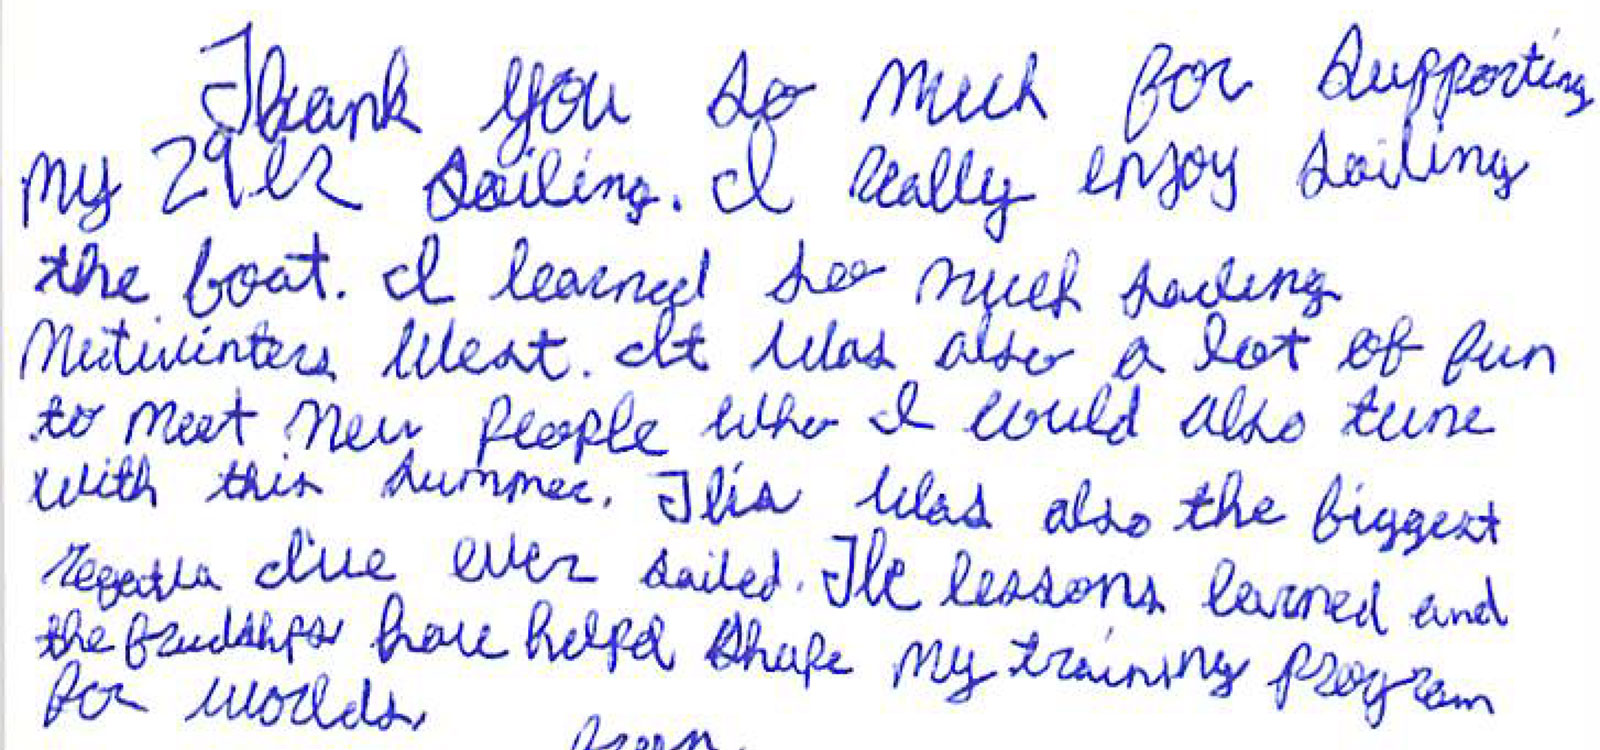 Thank you so much for supporting
my 29er sailing. I really enjoy sailing
the boat. I learned so much sailing
Midwinters West. It was also a lot of fun
to meet new people who I could also tune
with this summer. This was also the biggest
regatta I've ever sailed. The lessons learned and
the friendships have helped shape my training program
for worlds.